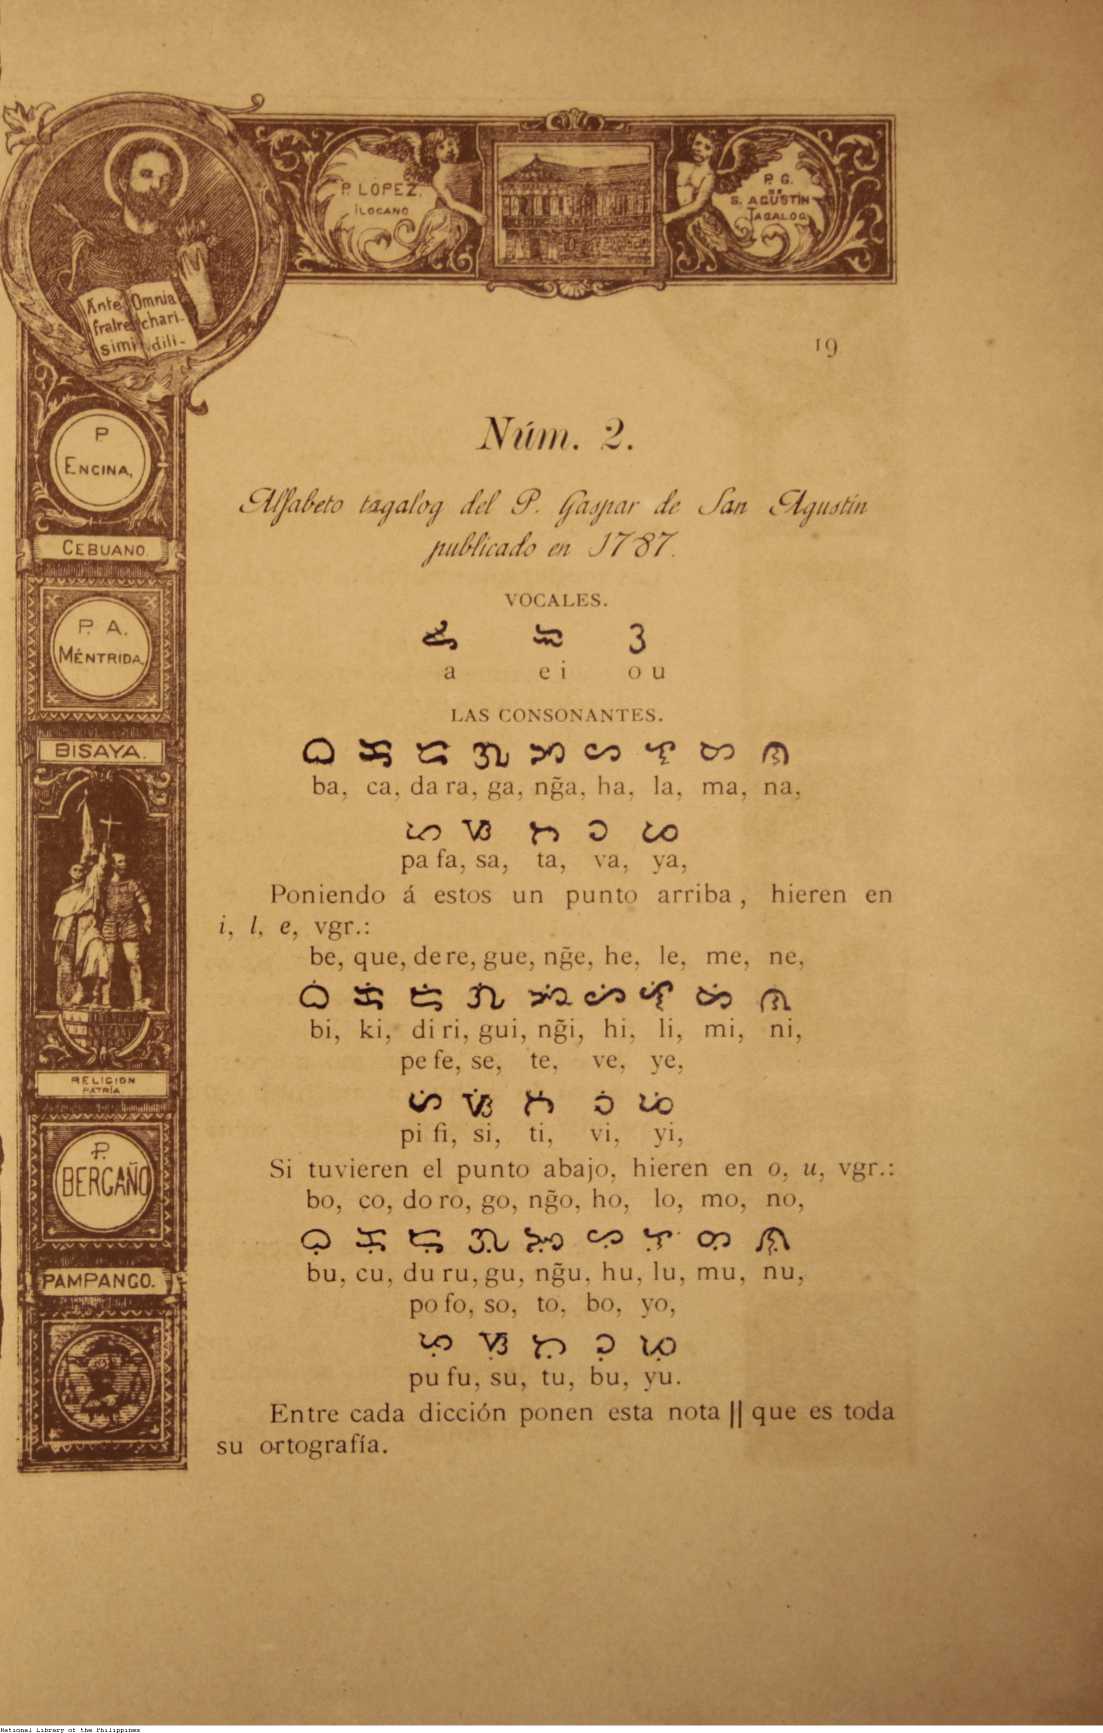 P. LÓPEZ.
ILOCANO
P. G.
S. AGUSTÍN
TAGALOG
Ante Omnia
fratres chari-
simi dili-
19
P
ENCINA,
CEBUANO.
P. A.
MÉNTRIDA,
BISAYA.
RELIGION
PATRÍA
P.
BERGAÑO
PAMPANGO.
Núm. 2.
Alfabeto tagalog del P. Gaspar de San Agustín
publicado en 1787.
VOCALES.
ᜀ ᜁ ᜂ
a e i o u
LAS CONSONANTES.
ᜊ ᜃ ᜇ ᜄ ᜅ ᜑ ᜎ ᜋ ᜈ
ba, ca, da ra, ga, ng̃a, ha, la, ma, na,
ᜉ ᜐ ᜆ ᜏ ᜌ
pa fa, sa, ta, va, ya,
Poniendo á estos un punto arriba, hieren en
i, l, e, vgr.:
be, que, de re, gue, ng̃e, he, le, me, ne,
ᜊᜒ ᜃᜒ ᜇᜒ ᜄᜒ ᜅᜒ ᜑᜒ ᜎᜒ ᜋᜒ ᜈᜒ
bi, ki, di ri, gui, ng̃i, hi, li, mi, ni,
pe fe, se, te, ve, ye,
ᜉᜒ ᜐᜒ ᜆᜒ ᜏᜒ ᜌᜒ
pi fi, si, ti, vi, yi,
Si tuvieren el punto abajo, hieren en o, u, vgr.:
bo, co, do ro, go, ng̃o, ho, lo, mo, no,
ᜊᜓ ᜃᜓ ᜇᜓ ᜄᜓ ᜅᜓ ᜑᜓ ᜎᜓ ᜋᜓ ᜈᜓ
bu, cu, du ru, gu, ng̃u, hu, lu, mu, nu,
po fo, so, to, bo, yo,
ᜉᜓ ᜐᜓ ᜆᜓ ᜏᜓ ᜌᜓ
pu fu, su, tu, bu, yu.
Entre cada dicción ponen esta nota || que es toda
su ortografía.
National Library of the Philippines